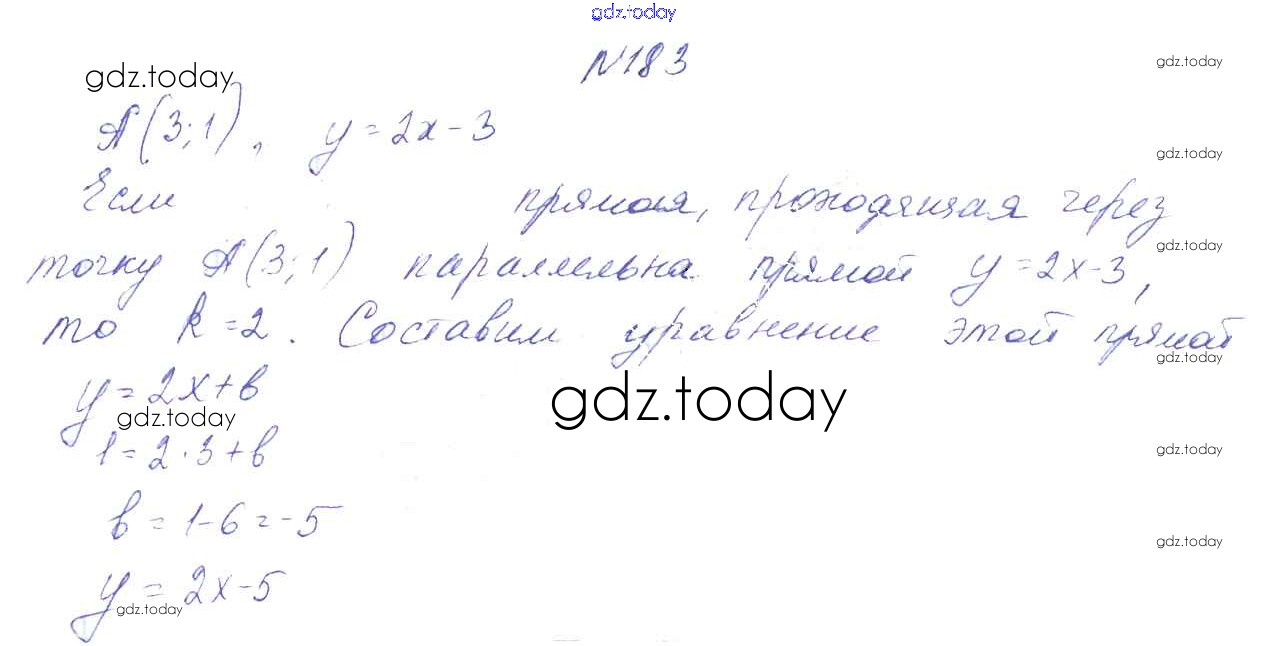 gdz.today
N183
gdz.today
gdz.today
A(3;1), y=2x-3
gdz.today
Если прямая, проходящая через
gdz.today
точку A(3;1) параллельна прямой y=2x-3,
то k=2. Составим уравнение этой прямой
gdz.today
y=2x+b
gdz.today
gdz.today
1=2·3+b
gdz.today
b=1-6=-5
gdz.today
y=2x-5
gdz.today